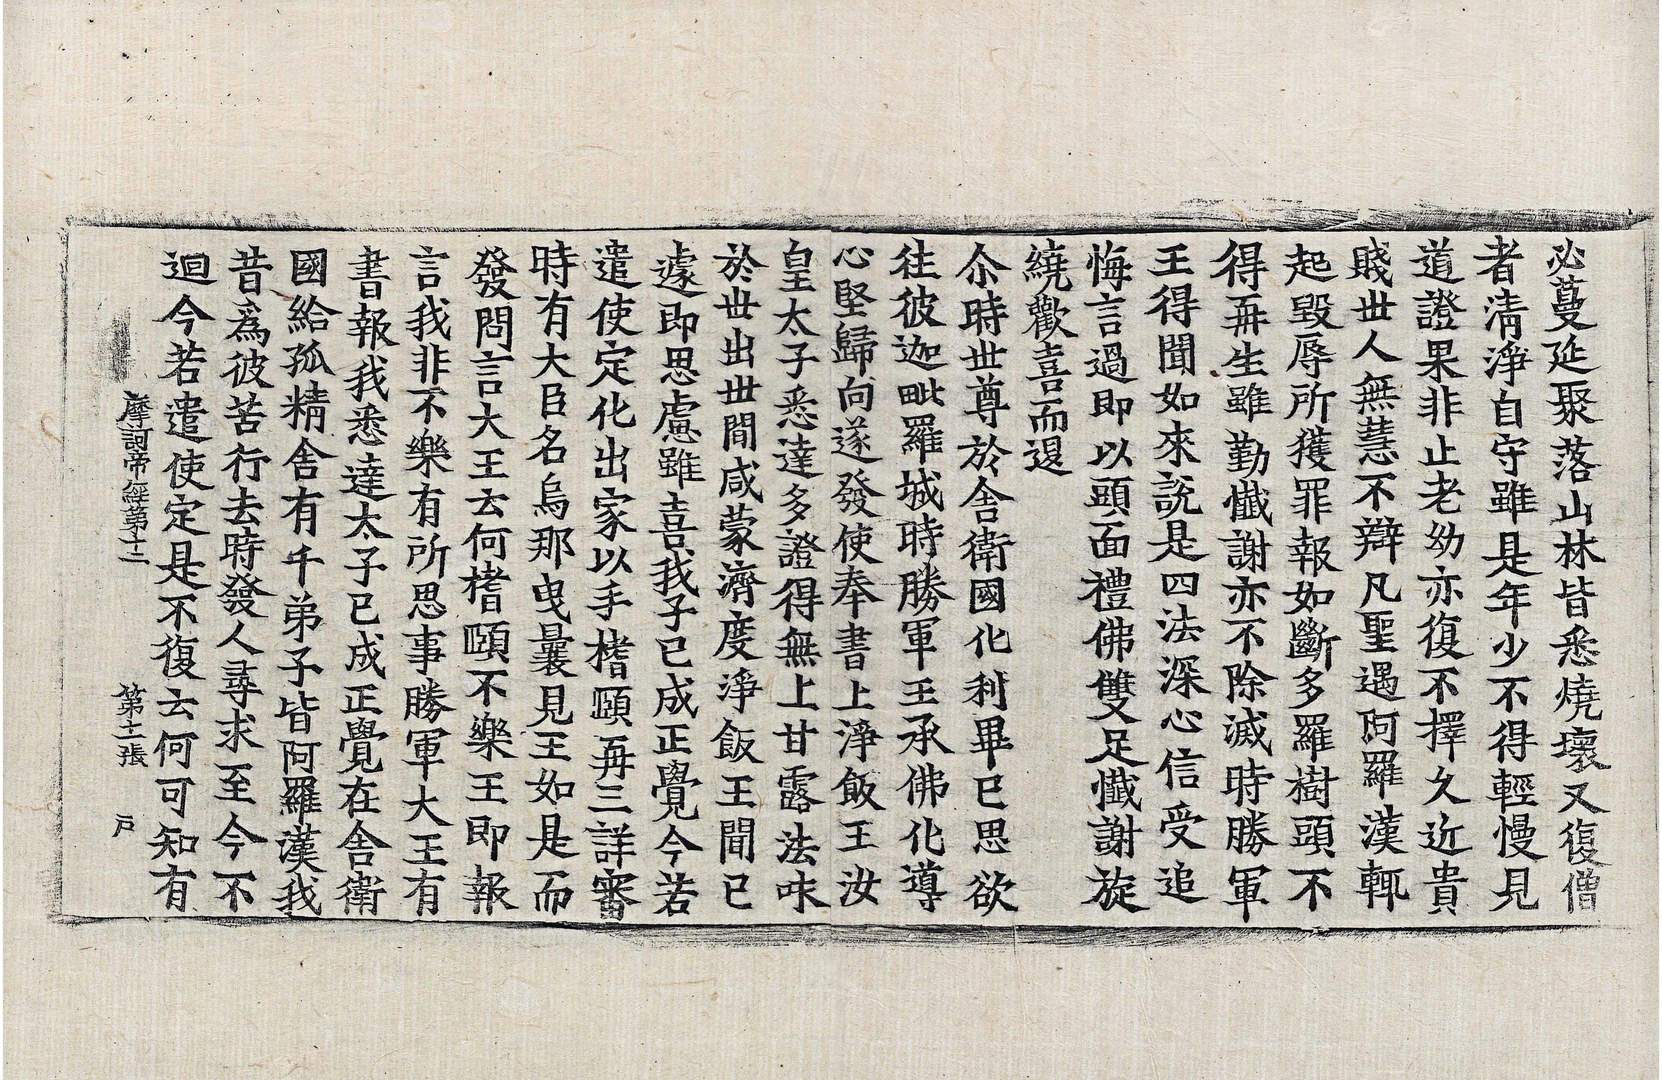 必蔓延聚落山林皆悉燒壞又復僧
者清淨自守雖是年少不得輕慢見
道證果非止老幼亦復不擇久近貴
賤世人無慧不辯凡聖遇阿羅漢輒
起毀辱所獲罪報如斷多羅樹頭不
得再生雖勤懺謝亦不除滅時勝軍
王得聞如來說是四法深心信受追
悔言過即以頭面禮佛雙足懺謝旋
繞歡喜而退
尒時世尊於舍衛國化利畢已思欲
往彼迦毗羅城時勝軍王承佛化導
心堅歸向遂發使奉書上淨飯王汝
皇太子悉達多證得無上甘露法味
於世出世間咸蒙濟度淨飯王聞已
遽即思慮雖喜我子已成正覺今若
遣使定化出家以手榰頤再三詳審
時有大臣名烏那曳曩見王如是而
發問言大王云何榰頤不樂王即報
言我非不樂有所思事勝軍大王有
書報我悉達太子已成正覺在舍衛
國給孤精舍有千弟子皆阿羅漢我
昔為彼苦行去時發人尋求至今不
迴今若遣使定是不復云何可知有
摩訶帝經第十二 第十二張 戶